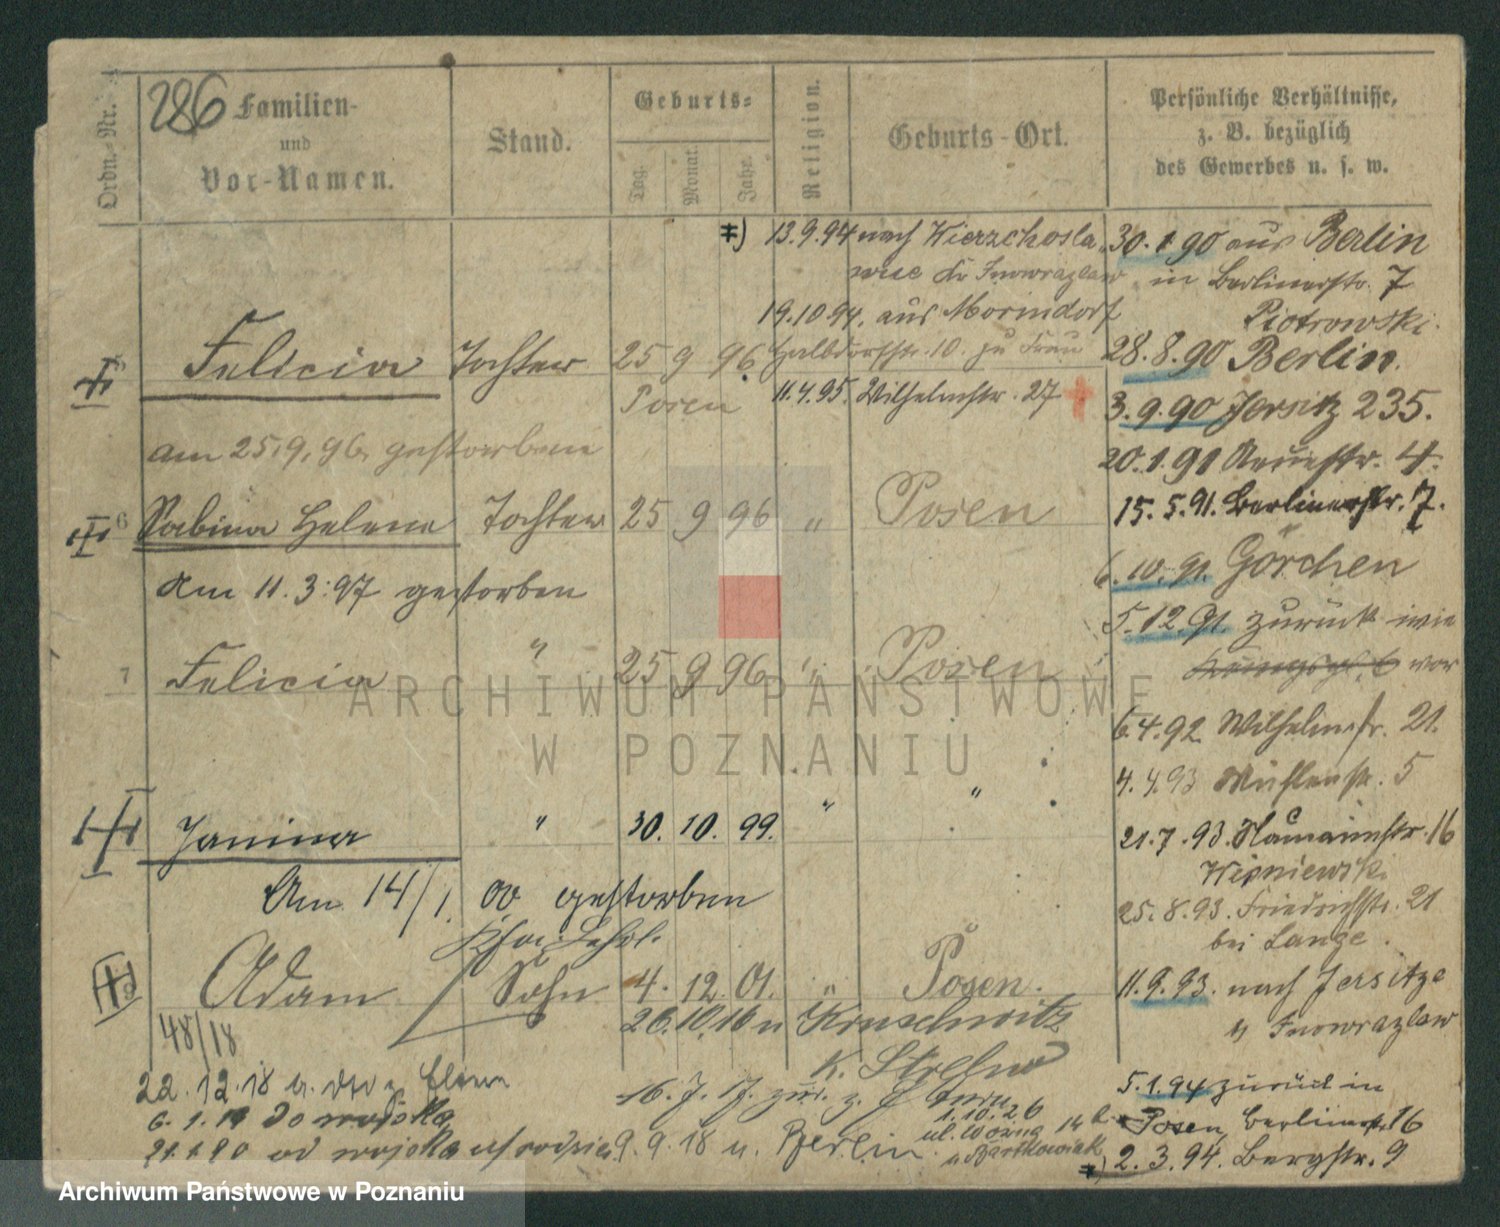 286 Familien-
und
Vor-Namen.
Ordn.-Nr.
Stand.
Geburts-
Tag.
Monat.
Jahr.
Religion.
Geburts-Ort.
Persönliche Verhältnisse,
z. B. bezüglich
des Gewerbes u. s. w.
13.9.94 nach Wierzchosla
wice Kr Inowrazlaw
19.10.94. aus Morindorf
Halbdorfstr. 10. zu Frau
11.4.95. Wilhelmstr. 27
Felicia Tochter 25 9 96.
Posen
am 25.9.96. gestorben
6 Sabina Helena Tochter 25 9 96 " Posen
Am 11.3.97 gestorben
7 Felicia " 25 9 96 " Posen
Janina " 30. 10. 99. " "
Am 14/1. 00 gestorben
Adam Sohn 4. 12. 01. " Posen.
26.10.16 n Kruschwitz
K. Strelno
48/18
22.12.18
16.7.17. zur. z.
6.1.19 do wojska
21.1.20 od wojska
9.9.18 n. Berlin
1.10.26
ul. Woźna 14
u Bartkowiak
30.1.90 aus Berlin
in Berlinerstr. 7
Piotrowski.
28.8.90 Berlin.
3.9.90 Jersitz 235.
20.1.91 Neuestr. 4.
15.5.91. Berlinerstr. 7.
6.10.91. Görchen
5.12.91 zurück wie
vor
6.4.92 Wilhelmstr. 21.
4.4.93 Mühlenstr. 5
21.7.93. Naumannstr. 16
Wisniewski
25.8.93. Friedrichstr. 21
bei Lange.
11.9.93. nach Jersitze
Inowrazlaw
5.1.94 zurück in
Posen, Berlinerstr. 16
2.3.94. Bergstr. 9
ARCHIWUM PAŃSTWOWE
W POZNANIU
Archiwum Państwowe w Poznaniu